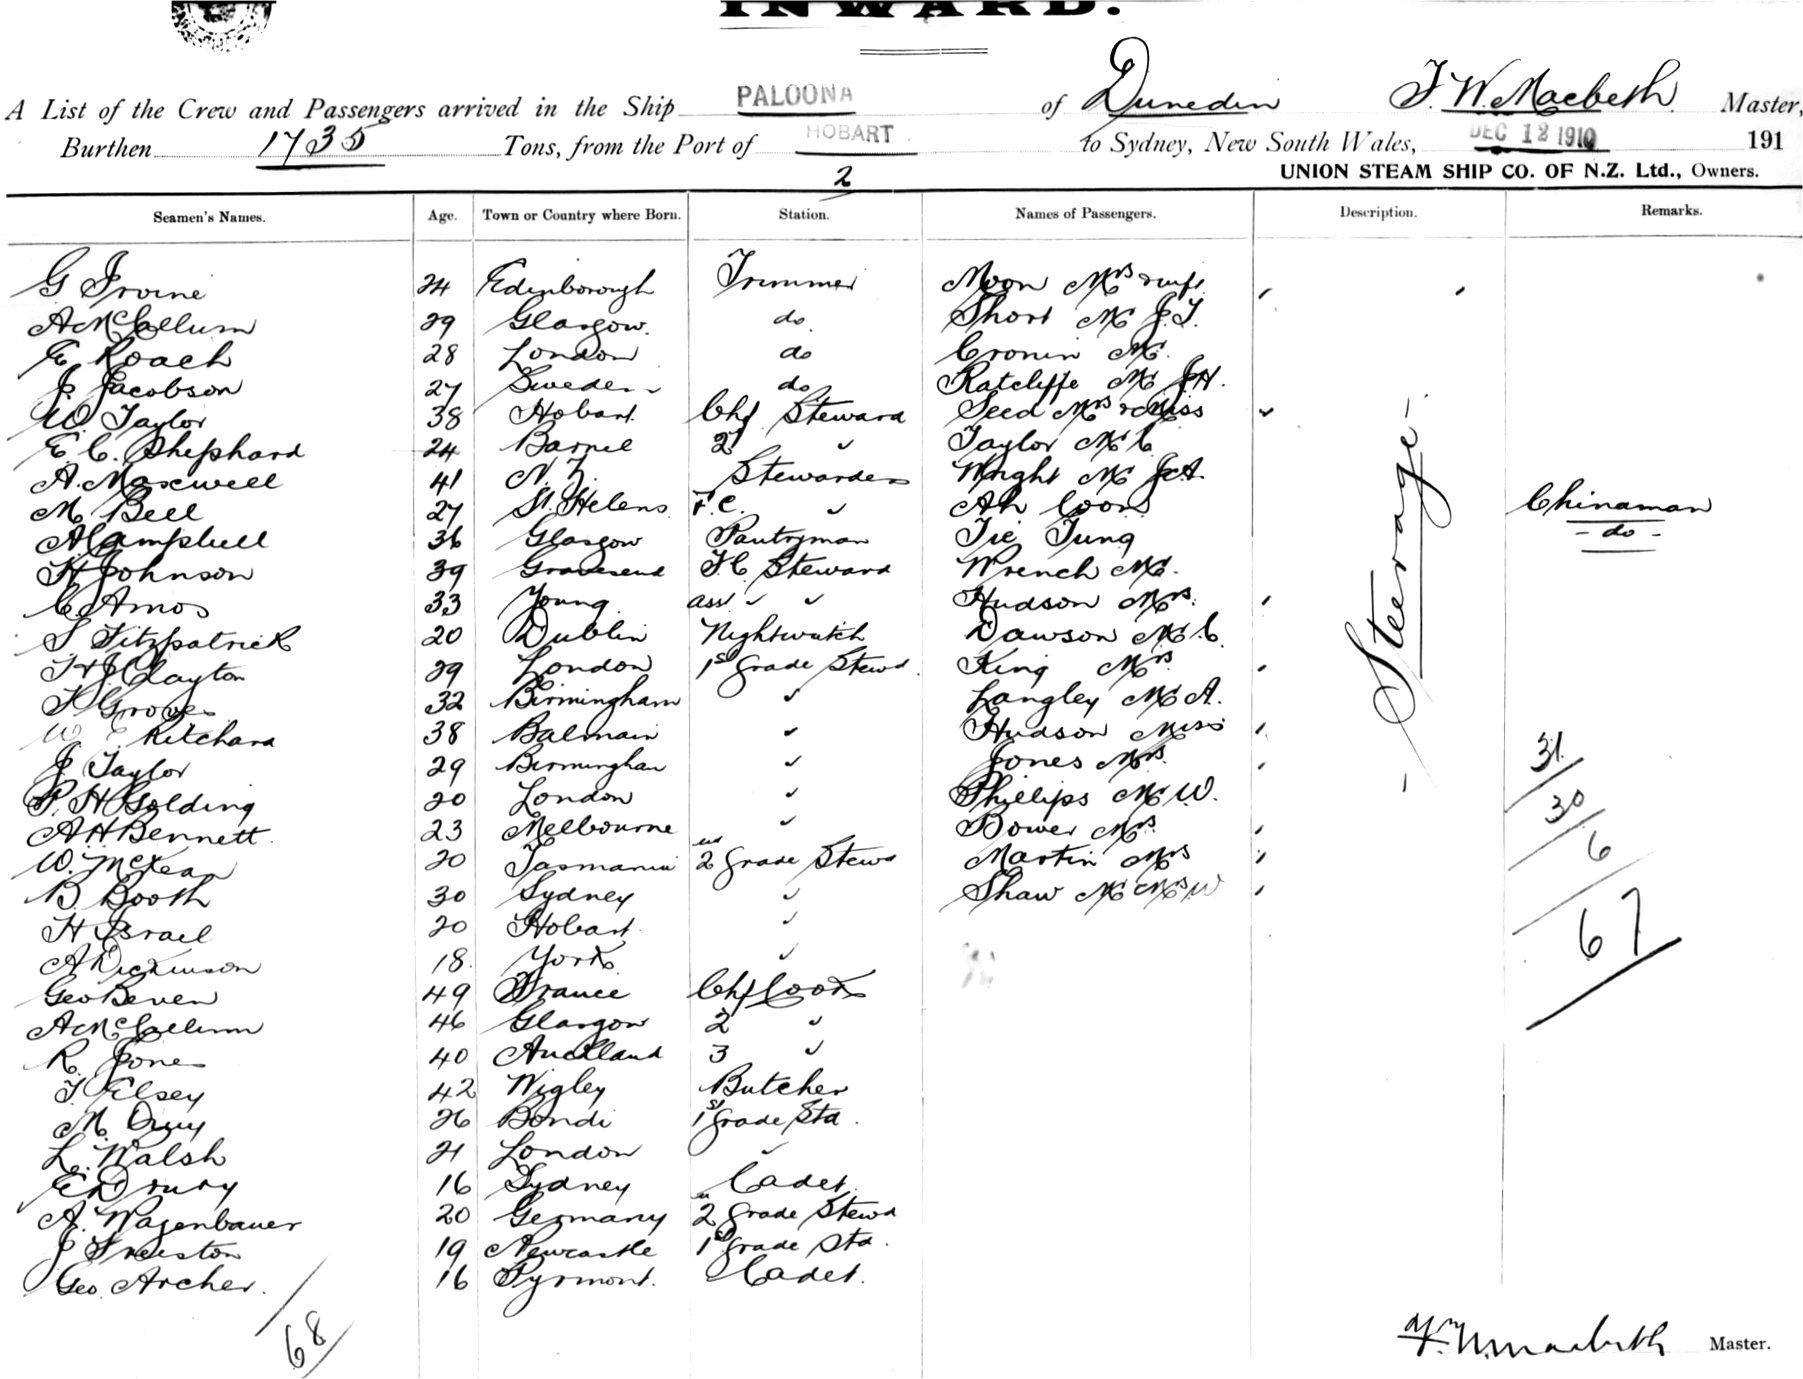 INWARD.
A List of the Crew and Passengers arrived in the Ship PALOONA of Dunedin F. W. Macbeth Master,
Burthen 1735 Tons, from the Port of HOBART to Sydney, New South Wales, DEC 12 1910 191
2 UNION STEAM SHIP CO. OF N.Z. Ltd., Owners.
Seamen's Names. Age. Town or Country where Born. Station. Names of Passengers. Description. Remarks.
G Irvine 24 Edinborough Trimmer Moon Mrs
A McCallum 29 Glasgow. do Short Mr J.T.
E Roach 28 London do Cronin Mr
J Jacobson 27 Sweden do Ratcliffe Mr J.H.
W. Taylor 38 Hobart Chf Steward Seed Mrs & Miss
E C. Shephard 24 2 " Taylor Mr C
A. Maxwell 41 N.Z. Stewardess Wright Mr J.A.
M Bell 27 St. Helens F.C. " Ah Coon Chinaman
A Campbell 36 Glasgow Pantryman Tie Tung - do -
H Johnson 39 Gravesend F.C. Steward Wrench Mr.
C. Amos 33 Young asst " " Hudson Mrs.
S Fitzpatrick 20 Dublin Nightwatch Dawson Mr C
H J Clayton 29 London 1st Grade Stewd King Mrs
F Groves 32 Birmingham " Langley Mr A.
W E Ritchard 38 Balmain " Hudson Miss
J Taylor 29 Birmingham " Jones Mrs
P. H Golding 20 London " Phillips Mr W.
A H Bennett 23 Melbourne " Bower Mrs
W. McKean 20 Tasmania 2 Grade Stewd Martin Mrs
B. Booth 30 Sydney " Shaw Mr Mrs W
H Israel 20 Hobart "
A Dickinson 18 York "
Geo Beven 49 France Chf Cook
A McCallum 46 Glasgow 2 "
R. Jones 40 Auckland 3 "
T. Elsey 42 Wigley Butcher
M. 26 Bondi 1st Grade Std.
L. Walsh 21 London "
E Drury 16 Sydney Cadet.
A. Wagenbauer 20 Germany 2 Grade Stewd
J Freiston 19 Newcastle 1st Grade Std.
Geo. Archer. 16 Pyrmont. Cadet.
68
- Steerage -
31
30
6
67
F. W. Macbeth Master.